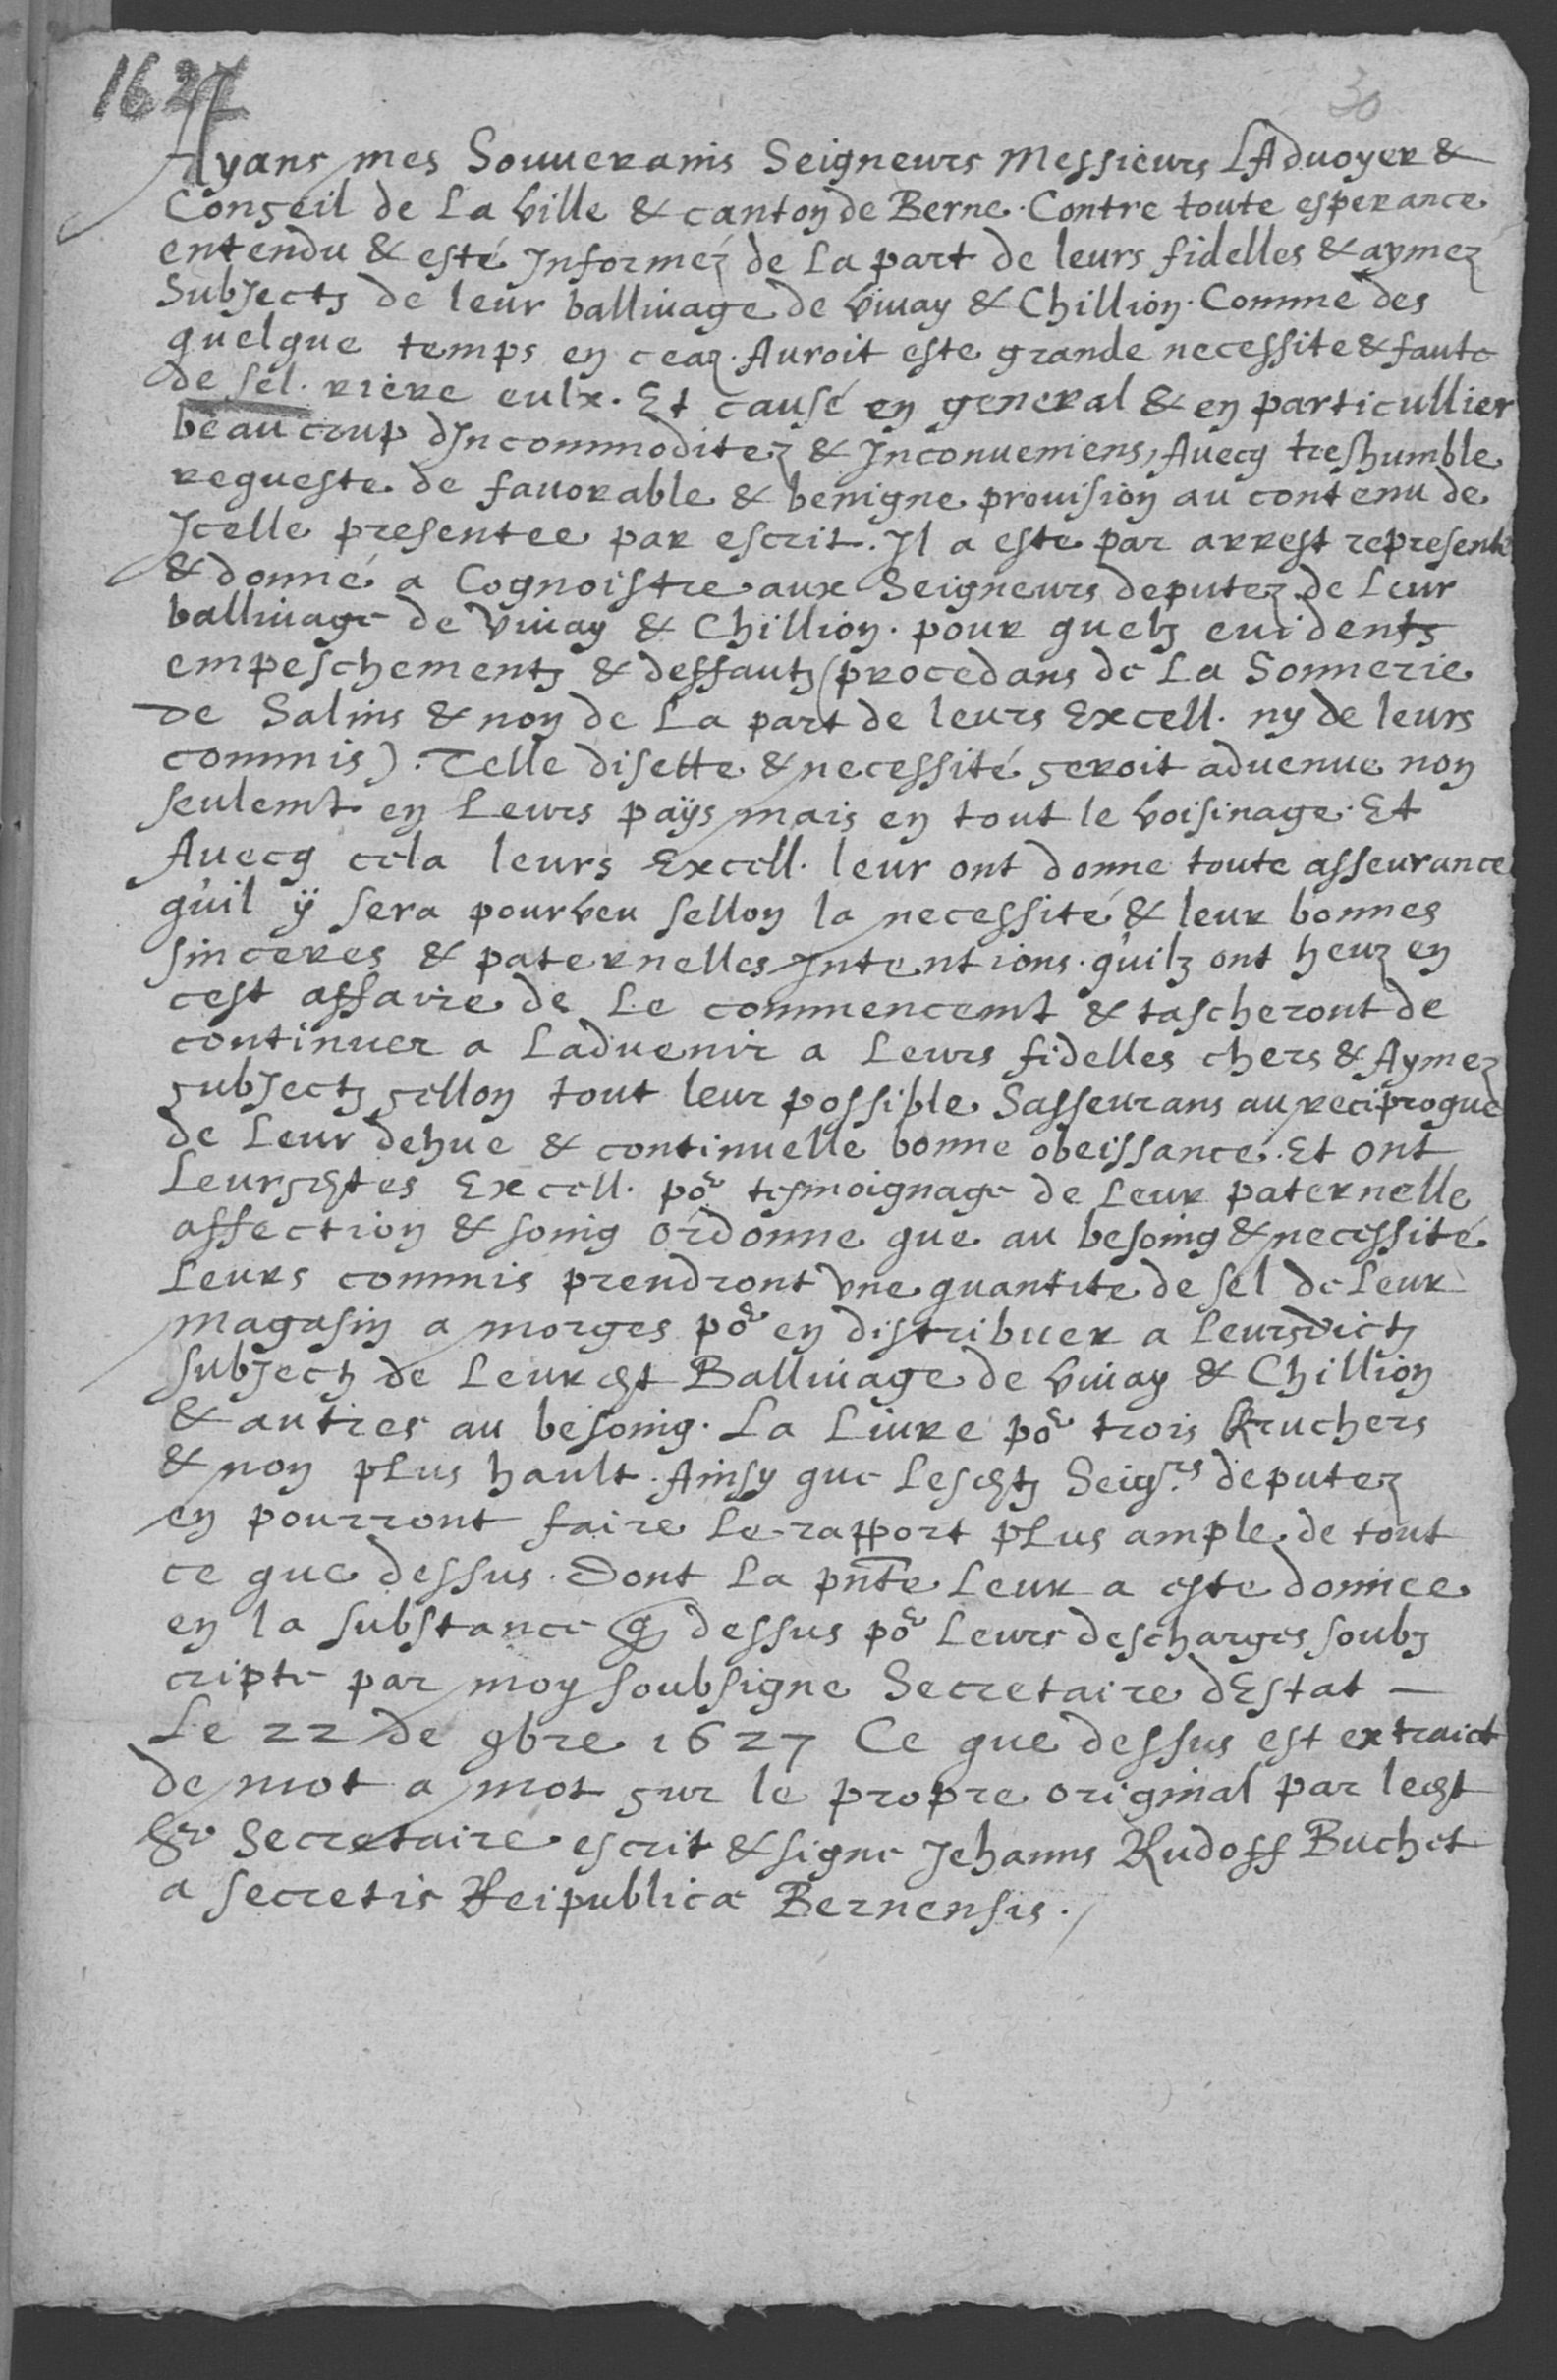 1627
30
Ayans mes Souuerains Seigneurs Messieurs LAduoyer &
Conseil de La Ville & canton de Berne. Contre toute esperance
entendu & esté Informéz de La part de leurs fidelles & aymez
Subjects de leur balliuage de Viuay & Chillion. Comme des
quelque temps en ceaz. Auroit este grande necessite & faute
de sel. riere eulx. Et causé en general & en particullier
beaucoup dIncommoditez & Inconueniens, Auecq treshumble
requeste de fauorable & benigne prouision au contenu de
Icelle presentee par escrit. Il a este par arrest represente
& donné a Cognoistre aux Seigneurs deputez de Leur
balliuage de Viuay & Chillion. pour quelz euidents
empeschementz & deffautz (procedans de La Sonnerie
de Salins & non de La part de leurs Excell. ny de leurs
commis). Telle disette & necessité seroit aduenue non
seulemt en Leurs païjs mais en tout le Voisinage. Et
Auecq cela leurs Excell. leur ont donne toute asseurance
qu'il ÿ sera pourveu sellon la necessité & leur bonnes
sinceres & paternelles Intentions. qu'ilz ont heuz en
cest affaire de Le commencemt & tascheront de
continuer a Laduenir a Leurs fidelles chers & Aymez
subjectz sellon tout leur possible Sasseurans au reciproque
de Leur dehue & continuelle bonne obeissance. Et ont
Leursdtes Excell. por tesmoignage de Leur paternelle
affection & soing ordonne que au besoing & necessité
Leurs commis prendront vne quantite de sel de Leur
magasin a morges por en distribuer a Leursdictz
subjectz de Leurdt Balliuage de Viuay & Chillion
& autres au besoing. La Liure por trois Kruchers
& non plus hault. Ainsy que Lesdtz Seigrs deputez
en pourront faire Le rapport plus ample de tout
ce que dessus. Dont La pnte Leur a este donnee
en la substance q dessus por Leurs descharges soubz
cripte par moy soubsigne Secretaire dEstat —
Le 22 de 9bre 1627 Ce que dessus est extraict
de mot a mot sur le propre original par ledt
Sr Secretaire escrit & signe Jehanns Rudoff Buchet
a secretis Reipublica Bernensis.